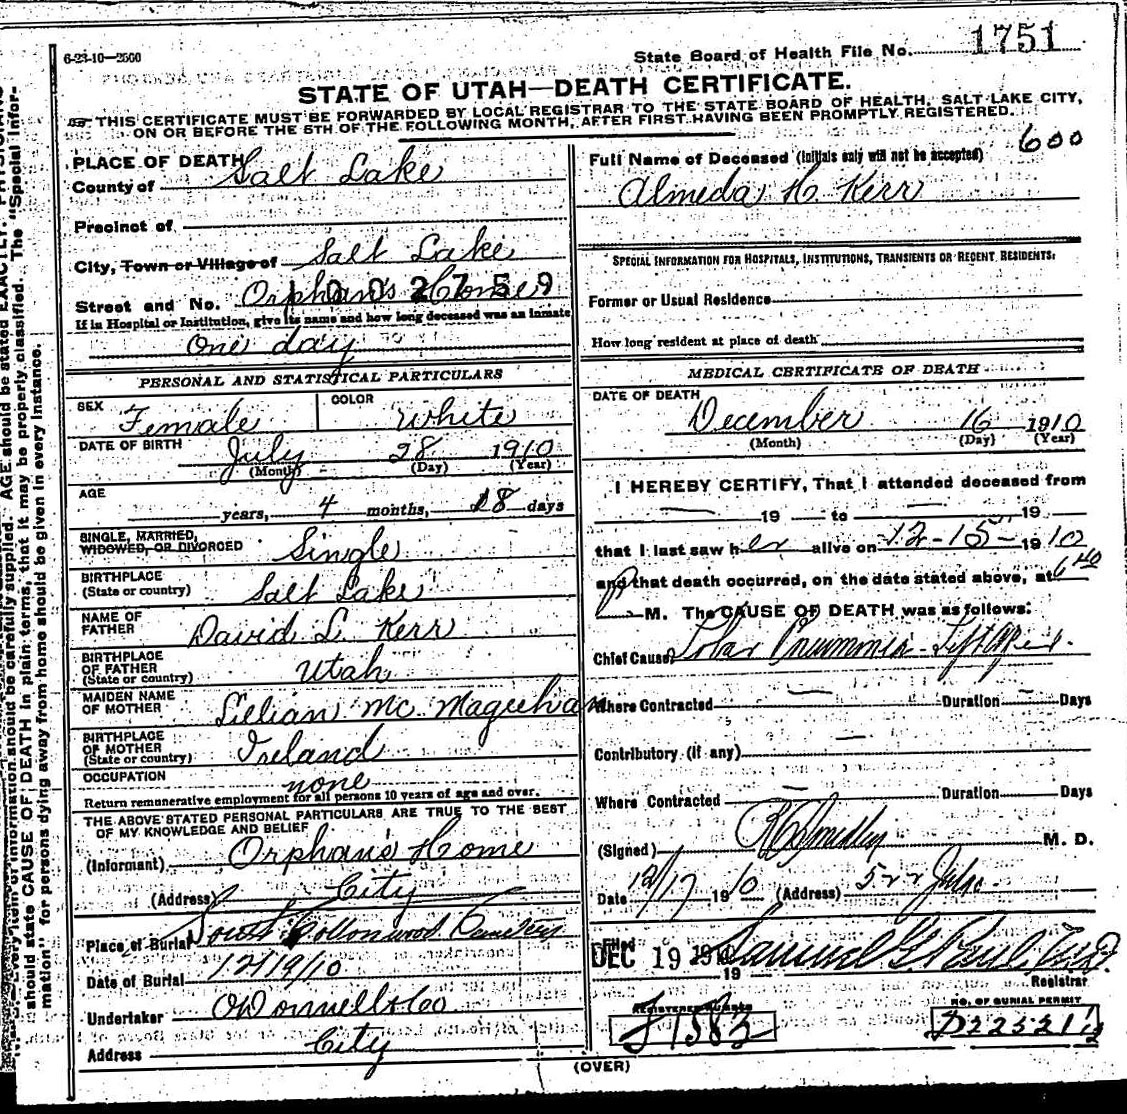 6-23-10—2500
State Board of Health File No. 1751
STATE OF UTAH—DEATH CERTIFICATE.
THIS CERTIFICATE MUST BE FORWARDED BY LOCAL REGISTRAR TO THE STATE BOARD OF HEALTH, SALT LAKE CITY,
ON OR BEFORE THE 5TH OF THE FOLLOWING MONTH, AFTER FIRST HAVING BEEN PROMPTLY REGISTERED.
PLACE OF DEATH
County of Salt Lake
Precinct of
City, Town or Village of Salt Lake
Street and No. Orphan's Home
002759
If in Hospital or Institution, give its name and how long deceased was an inmate
One day
PERSONAL AND STATISTICAL PARTICULARS
SEX Female COLOR White
DATE OF BIRTH July 28 1910
(Month) (Day) (Year)
AGE years, 4 months, 18 days
SINGLE, MARRIED,
WIDOWED, OR DIVORCED Single
BIRTHPLACE
(State or country) Salt Lake
NAME OF
FATHER David L. Kerr
BIRTHPLACE
OF FATHER
(State or country) Utah
MAIDEN NAME
OF MOTHER Lillian Mc Mageehan
BIRTHPLACE
OF MOTHER
(State or country) Ireland
OCCUPATION none
Return remunerative employment for all persons 10 years of age and over.
THE ABOVE STATED PERSONAL PARTICULARS ARE TRUE TO THE BEST
OF MY KNOWLEDGE AND BELIEF
(Informant) Orphan's Home
(Address) City
Place of Burial South Cottonwood Cemetery
Date of Burial 12/19/10
Undertaker O'Donnell & Co
Address City
Full Name of Deceased (Initials only will not be accepted) 600
Almeda H. Kerr
SPECIAL INFORMATION FOR HOSPITALS, INSTITUTIONS, TRANSIENTS OR RECENT RESIDENTS:
Former or Usual Residence
How long resident at place of death
MEDICAL CERTIFICATE OF DEATH
DATE OF DEATH
December 16 1910
(Month) (Day) (Year)
I HEREBY CERTIFY, That I attended deceased from
— 19 — to — 19 —
that I last saw her alive on 12-15- 1910
and that death occurred, on the date stated above, at 6 40
P M. The CAUSE OF DEATH was as follows:
Chief Cause Lobar Pneumonia - Left Apex.
Where Contracted — Duration — Days
Contributory (if any) —
Where Contracted — Duration Days
(Signed) M. D.
Date 12/17 1910 (Address) 522
Filed
DEC 19 1910 Samuel G. Paul, M.D.
19 Registrar
REGISTERED NO. NO. OF BURIAL PERMIT
J1583 D22521½
(OVER)
should state CAUSE OF DEATH in plain terms, that it may be properly classified. The "Special Infor-
mation" for persons dying away from home should be given in every instance.